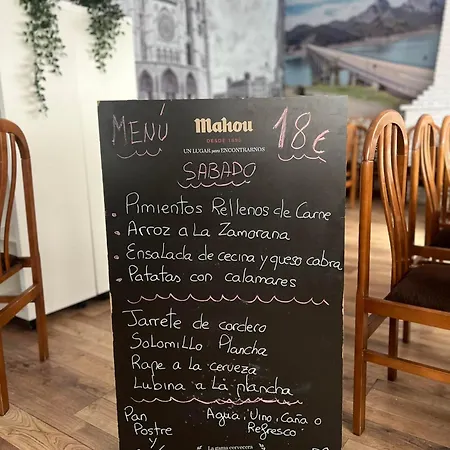 MENÚ
Mahou
DESDE 1890
UN LUGAR para ENCONTRARNOS
18€
SABADO
Pimientos Rellenos de Carne
Arroz a La Zamorana
Ensalada de cecina y queso cabra
Patatas con calamares
Jarrete de cordero
Solomillo Plancha
Rape a la cerveza
Lubina a la plancha
Pan
Agua, Vino, Caña o
Postre
Refresco
y
La gama cervecera